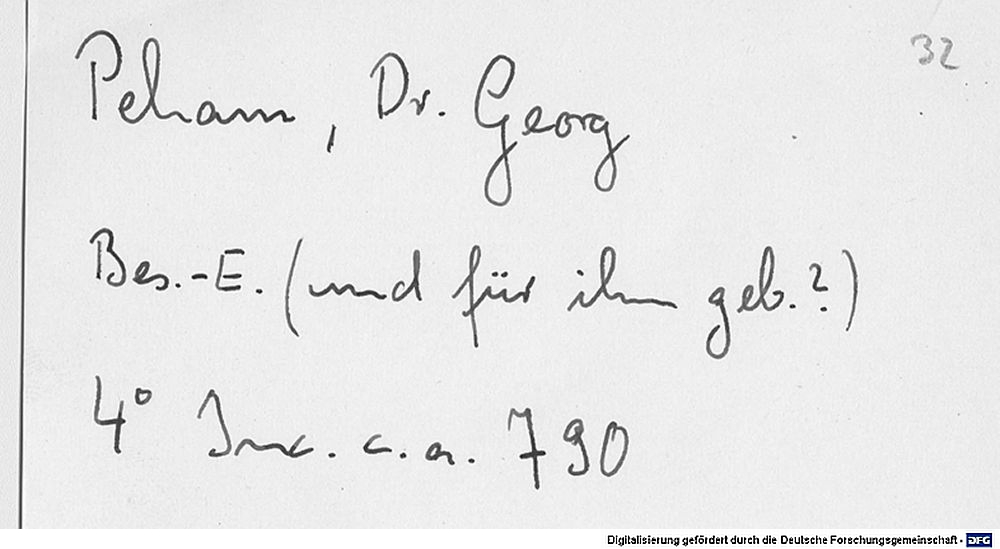 32
Peham, Dr. Georg
Bes.-E. (und für ihn geb.?)
4° Inc. c. a. 790
Digitalisierung gefördert durch die Deutsche Forschungsgemeinschaft - DFG